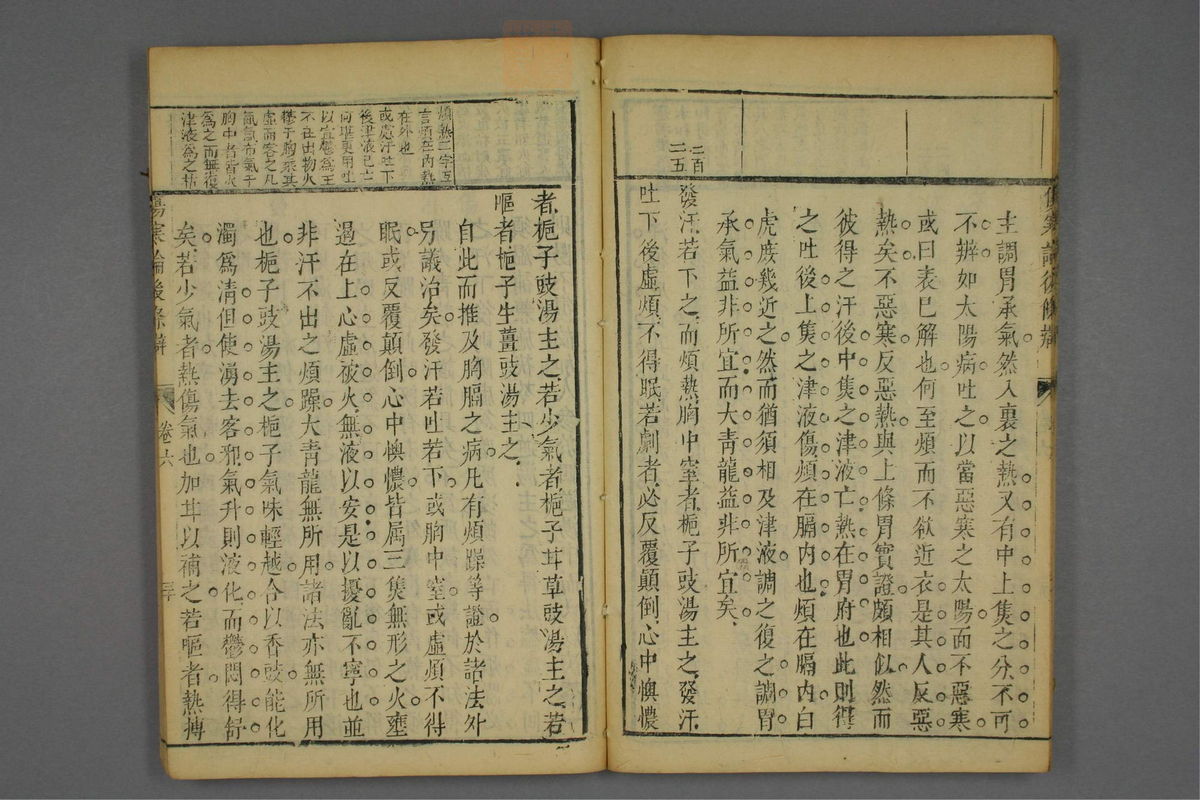 主調胃承氣然入裏之熱又有中上焦之分不可
不辨如太陽病吐之以當惡寒之太陽面不惡寒
或曰表已解也何至煩而不欲近衣是其人反惡
熱矣不惡寒反惡熱與上條胃實證頗相似然而
彼得之汗後中焦之津液亡熱在胃府也此則得
之吐後上焦之津液傷煩在膈内也煩在膈内白
虎庶幾近之然而猶須相及津液調之復之調胃
承氣益非所宜而大青龍益非所宜矣
二百二五
發汗若下之而煩熱胸中窒者梔子豉湯主之發汗
吐下後虛煩不得眠若劇者必反覆顛倒心中懊憹
傷寒論後條辨
卷六
煩熱二字互
言煩在内熱
在外也
或處汗吐下
後津液已亡
何堪更用吐
以宣鬱爲主
不在出物火
鬱于胸乘其
虛而客之凡
氣布氣于
胸中者皆火
爲之而無復
津液爲之枯
者梔子豉湯主之若少氣者梔子甘草豉湯主之若
嘔者梔子生薑豉湯主之
自此而推及胸膈之病凡有煩躁等證於諸法外
另議治矣發汗若吐若下或胸中窒或虛煩不得
眠或反覆顛倒心中懊憹皆屬三焦無形之火壅
遏在上心虛被火無液以安是以擾亂不寧也並
非汗不出之煩躁大青龍無所用諸法亦無所用
也梔子豉湯主之梔子氣味輕越合以香豉能化
濁爲清但使湧去客邪氣升則液化而鬱悶得舒
矣若少氣者熱傷氣也加甘以補之若嘔者熱摶